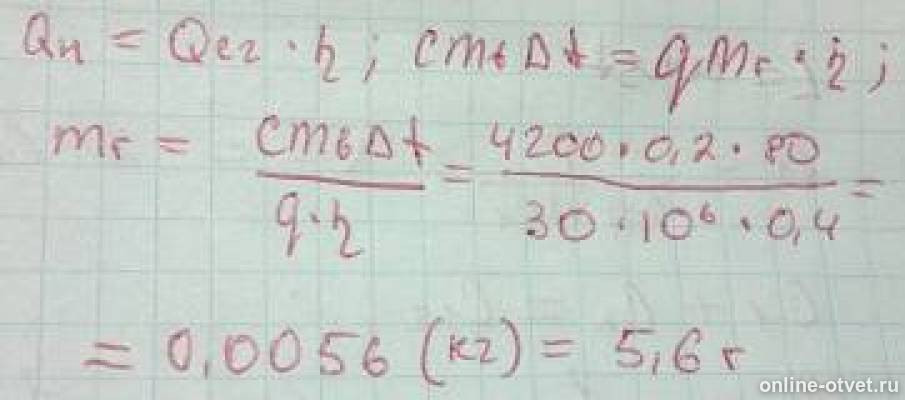 Qп = Qсг · η ; cmвΔt = qmг · η ;
mг = cmвΔt / q·η = 4200·0,2·80 / 30·10⁶·0,4 =
= 0,0056 (кг) = 5,6 г
online-otvet.ru